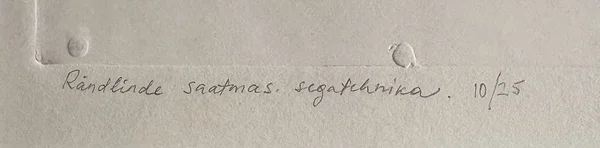 Rändlinde saatmas. segatehnika. 10/25